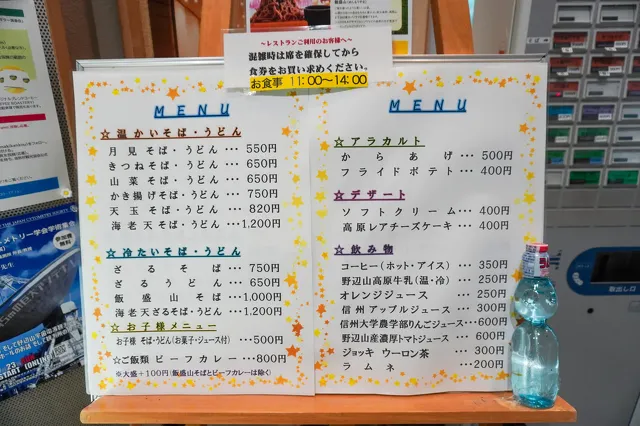 ～レストランご利用のお客様へ～
混雑時は席を確保してから
食券をお買い求めください。
お食事 11:00～14:00
MENU
☆温かいそば・うどん
月見そば・うどん・・・550円
きつねそば・うどん・・・650円
山菜そば・うどん・・・650円
かき揚げそば・うどん・・・750円
天玉そば・うどん・・・820円
海老天そば・うどん・・・1,200円
☆冷たいそば・うどん
ざるそば・・・750円
ざるうどん・・・650円
飯盛山そば・・・1,000円
海老天ざるそば・うどん・・・1,200円
☆お子様メニュー
お子様 そば・うどん(お菓子・ジュース付)・・・500円
☆ご飯類 ビーフカレー・・・800円
※大盛＋100円(飯盛山そばとビーフカレーは除く)
MENU
☆アラカルト
からあげ・・・500円
フライドポテト・・・400円
☆デザート
ソフトクリーム・・・400円
高原レアチーズケーキ・・・400円
☆飲み物
コーヒー(ホット・アイス)・・・350円
野辺山高原牛乳(温・冷)・・・250円
オレンジジュース・・・250円
信州アップルジュース・・・300円
信州大学農学部りんごジュース・・・600円
野辺山産濃厚トマトジュース・・・600円
ジョッキ ウーロン茶・・・300円
ラムネ・・・200円